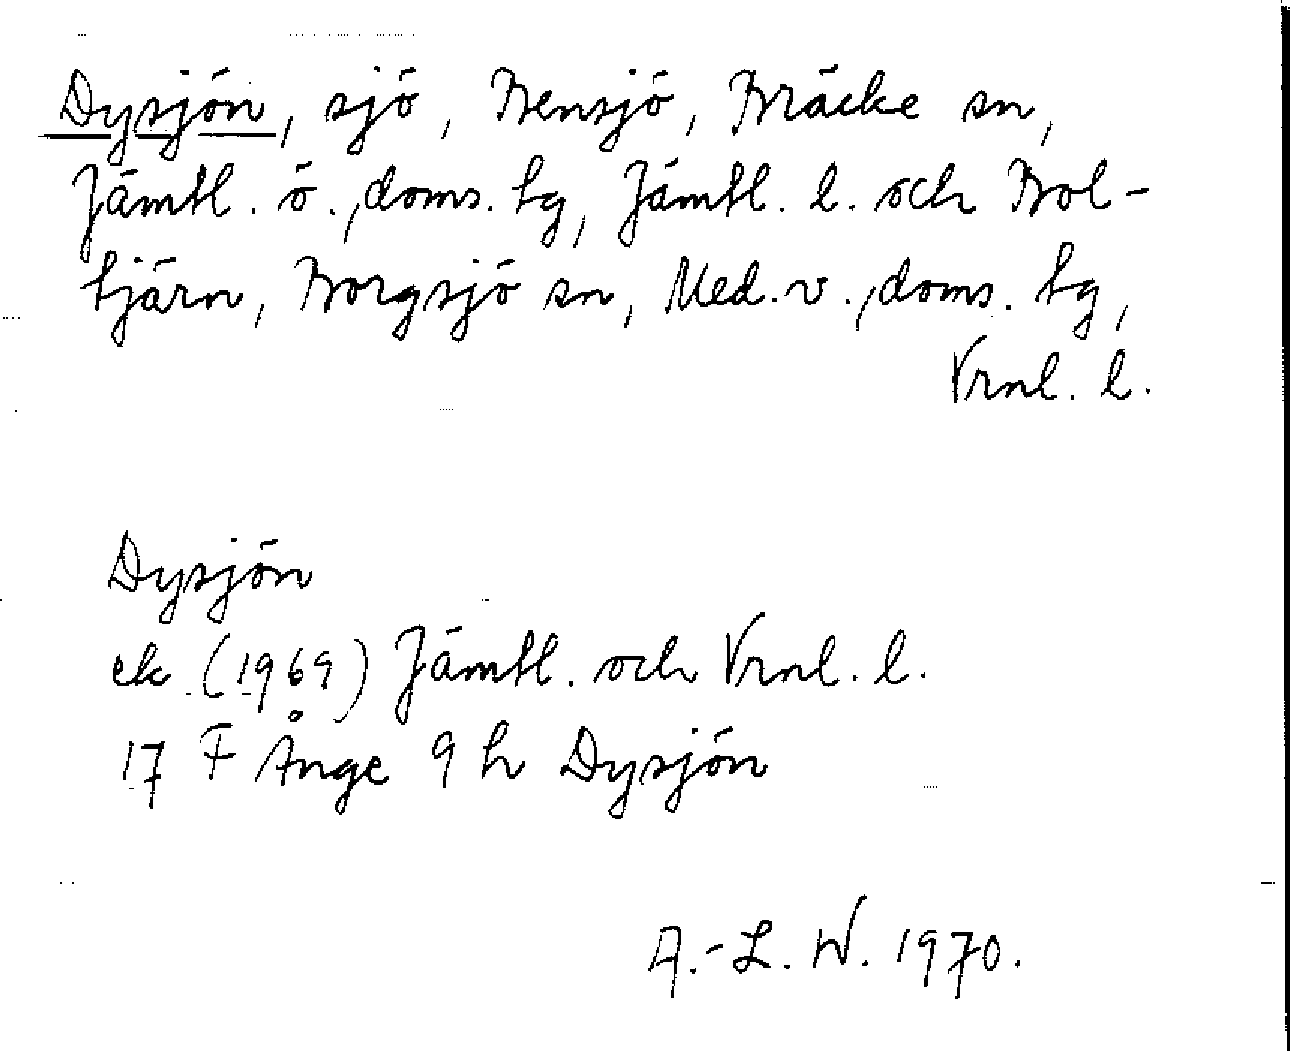 Dysjön, sjö, Bensjö, Bräcke sn,
Jämtl. ö., doms. tg, Jämtl. l. och Bol-
tjärn, Borgsjö sn, Med. v., doms. tg,
Vrnl. l.
Dysjön
ek (1969) Jämtl. och Vrnl. l.
17 F Ånge 9 h Dysjön
A.-L. W. 1970.